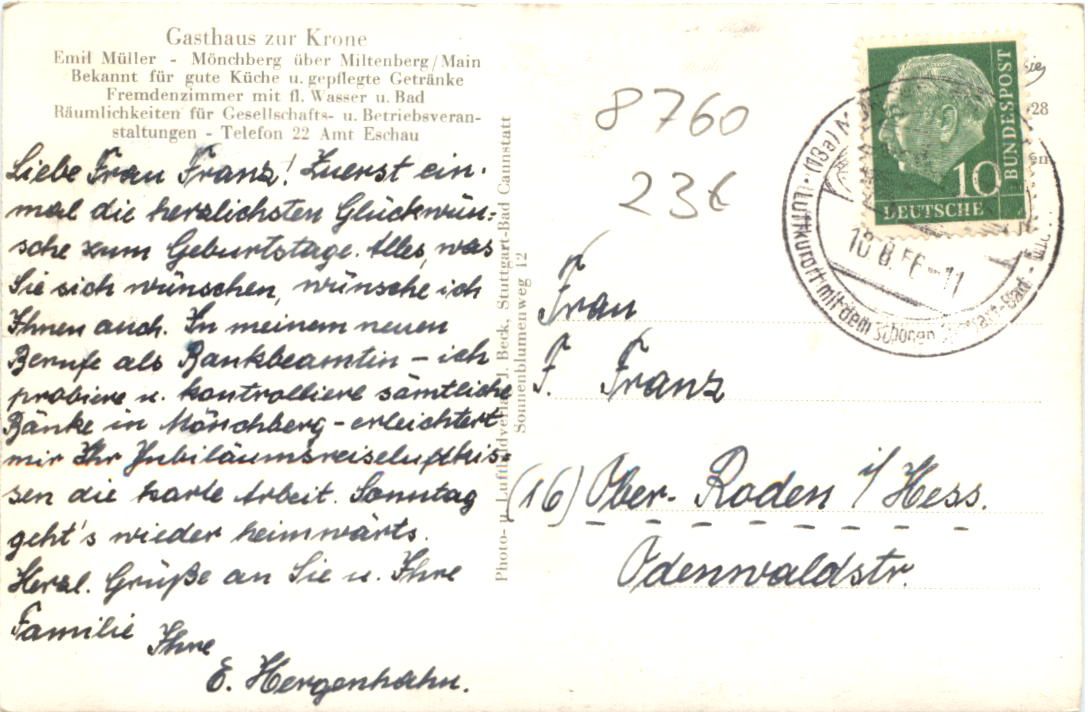 Gasthaus zur Krone
Emil Müller - Mönchberg über Miltenberg/Main
Bekannt für gute Küche u. gepflegte Getränke
Fremdenzimmer mit fl. Wasser u. Bad
Räumlichkeiten für Gesellschafts- u. Betriebsveran-
staltungen - Telefon 22 Amt Eschau
Liebe Frau Franz! Zuerst ein-
mal die herzlichsten Glückwün-
sche zum Geburtstage. Alles, was
Sie sich wünschen, wünsche ich
Ihnen auch. In meinem neuen
Berufe als Bankbeamtin - ich
probiere u. kontrolliere sämtliche
Bänke in Mönchberg - erleichtert
mir Ihr Jubiläumsreiseluftkis-
sen die harte Arbeit. Sonntag
geht's wieder heimwärts.
Herzl. Grüße an Sie u. Ihre
Familie
Ihre
E. Hergenhahn.
Photo- u. Luftbildverlag J. Beck, Stuttgart-Bad Cannstatt
Sonnenblumenweg 12
8760
23€
BUNDESPOST
10
DEUTSCHE
28
18.8.56-11
Luftkurort mit dem schönen
Bad
Frau
F. Franz
(16) Ober-Roden i/Hess.
Odenwaldstr.